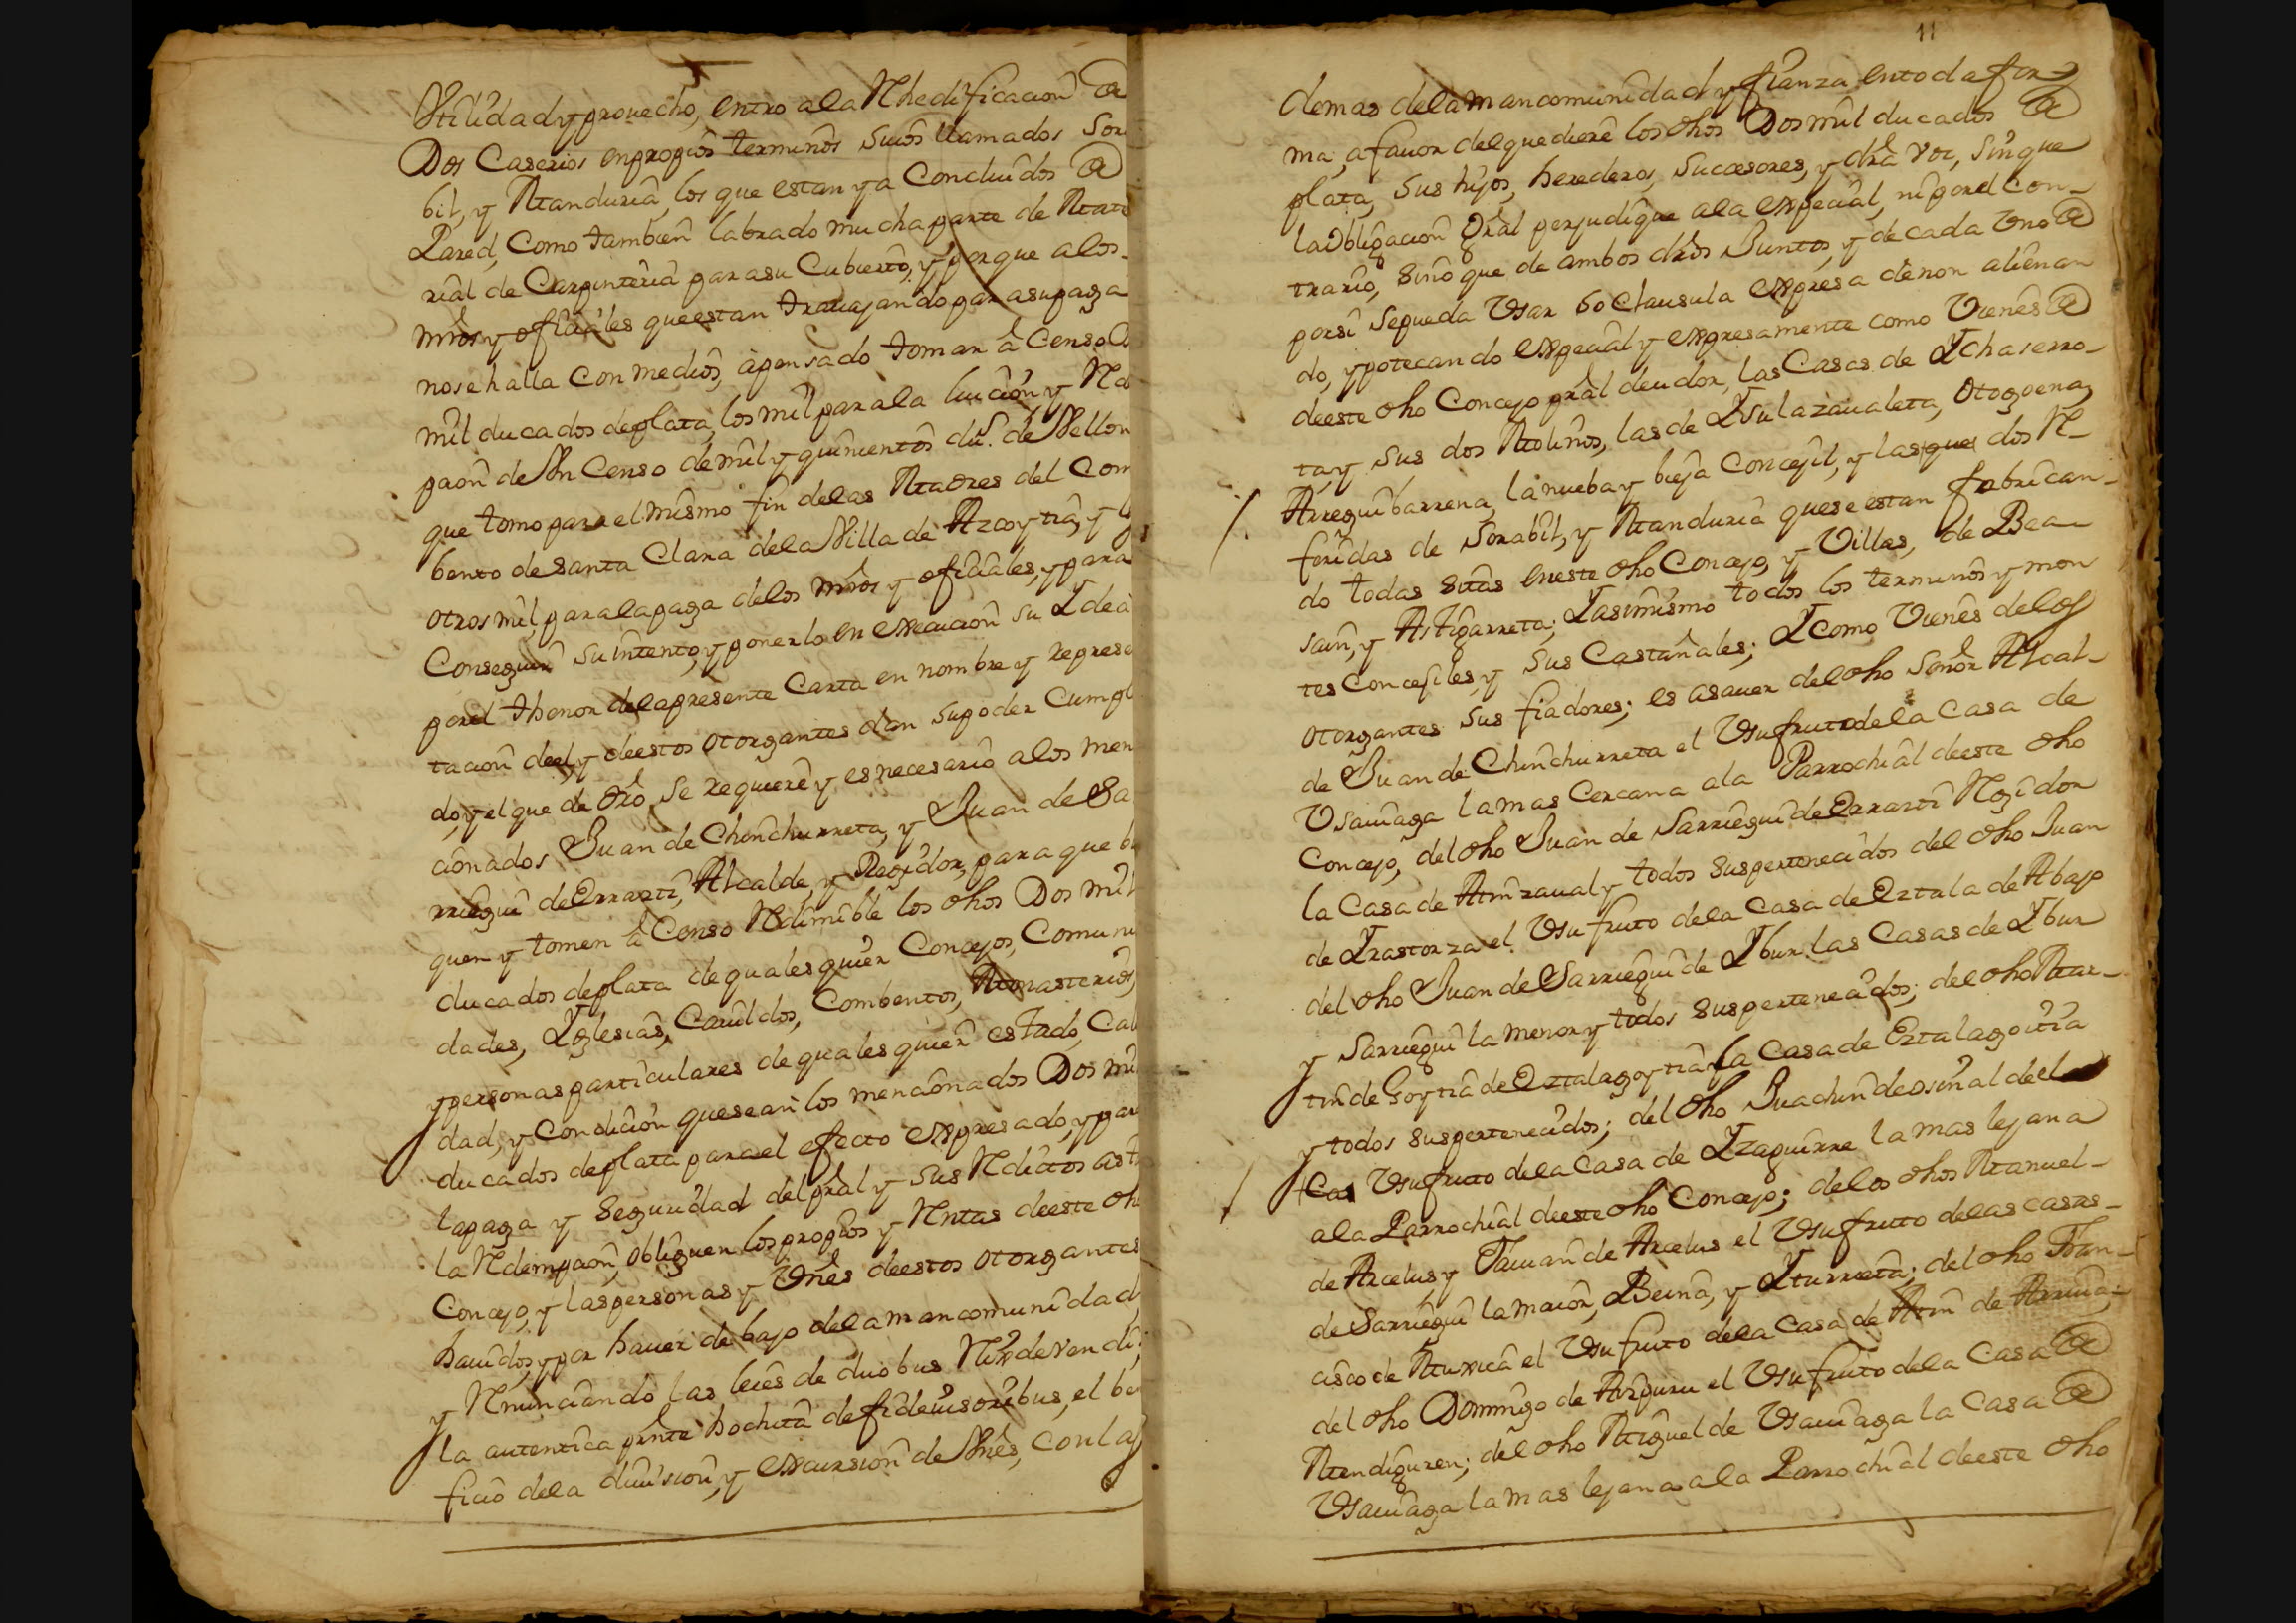 Vtilidad y prouecho, entro a la Rhedificacion de
Dos Caserios en propios terminos suios llamados Sor
bil, y Manduria, los que estan ya Concluidos de
Pared, Como tambien labrado mucha parte de Mate
rial de Carpinteria para su Cubierto, y porque a los
mros y ofiçiales que estan trauajando para su paga
no se halla Con medios, a pensado tomar â Censo D
mil ducados de plata, los mil para la luiçion, y Rd
pzon de Vn Censo de mil y quinientos dus. de Vellon
que tomo para el mismo fin de las Madres del Com
bento de Santa Clara de la Villa de Azcoytia, y l
otros mil para la paga de los mros y ofiçiales, y para
Conseguir su intento, y ponerlo en execucion su Ydea
por el thenor de la presente Carta en nombre y represe
taçion deel, y de estos otorgantes dan su poder Cumpl
do, y el que de dro se requiere y es necesario a los men
cionados Juan de Chinchurreta, y Juan de Sa
rriegui de Errarti, Alcalde, y Regidor, para que bu
quen y tomen â Censo Redimible los dhos Dos mil
ducados de plata de quales quier Concejos, Comuni
dades, Yglesias, Cauildos, Combentos, Monasterios,
y personas particulares de quales quier estado, Cal
dad, y Condiçion que sean los mencionados Dos mil
ducados de plata para el efecto expresado, y para
la paga y seguridad del pral y sus Rditos asta
la Rdempzon, obliguen los propios y Rntas de este dh
Concejo, y las personas y Vnes de estos otorgantes
hauidos, y por hauer de bajo de la mancomunidad,
y Rnunciando las leies de duobus Rix de vendi;
la autentica pnte hochita de fideiusoribus, el be
ficio de la diuision, y excursion de Vnes, con las
11
demas de la mancomunidad y fianza en toda for
ma, a fauor del que diere los dhos Dos mil ducados de
plata, sus hijos, herederos, sucçesores, y dra voz, sin que
la obligaçion gral perjudique a la especial, ni por el con-
trario, sino que de ambos dros Juntos, y de cada vno de
por si se pueda Vsar so Clausula expresa de non alienan
do, ypotecando especial y expresamente como Vienes de
de este dho Concejo pral deudor, las Casas de Ychaserro-
ta, y sus dos Molinos, las de Ysulazaualeta, otogoena,
Arreguibarrena, la nueba y bieja Concejil, y las que dos R-
feridas de Sorabil, y Manduria que se estan fabrican-
do todas sitas en este dho Concejo, y Villas, de Bea-
sain, y Astigarreta; Y asimismo todos los terminos y mon
tes Concejiles, y sus Castañales; Y como Vienes de los
otorgantes sus fiadores; es asauer del dho Señor Alcal-
de Juan de Chinchurreta el Vsufruto de la Casa de
Vsauiaga la mas Cercana a la Parrochial de este dho
Concejo, del dho Juan de Sarriegui de Errarti Regidor
la Casa de Aimzaual y todos sus pertenecidos del dho Juan
de Yrastorza el Vsufruto de la Casa de Eztala de Abajo
del dho Juan de Sarriegui de Ybur las Casas de Ybur
y Sarriegui la menor y todos sus pertenecidos; del dho Mar-
tin de Goytia de Eztalagoytia la Casa de Eztalagoitia
y todos sus pertenecidos; del dho Juachin de osinalde el
Vsufruto de la Casa de Yzaguirre la mas lejana
a la Parrochial de este dho Concejo; de los dhos Manuel-
de Arcelus, y Damian de Arcelus el Vsufruto de las casas-
de Sarriegui la maior, Beina, y Yturrieta; del dho Fran-
cisco de Muxica el Vsufruto de la Casa de de Arruia;
del dho Domingo de Aizpuru el Vsufruto de la Casa de
Mendiguren; del dho Miguel de Vsauiaga la Casa de
Vsauiaga la mas lejana a la Parrochial de este dho